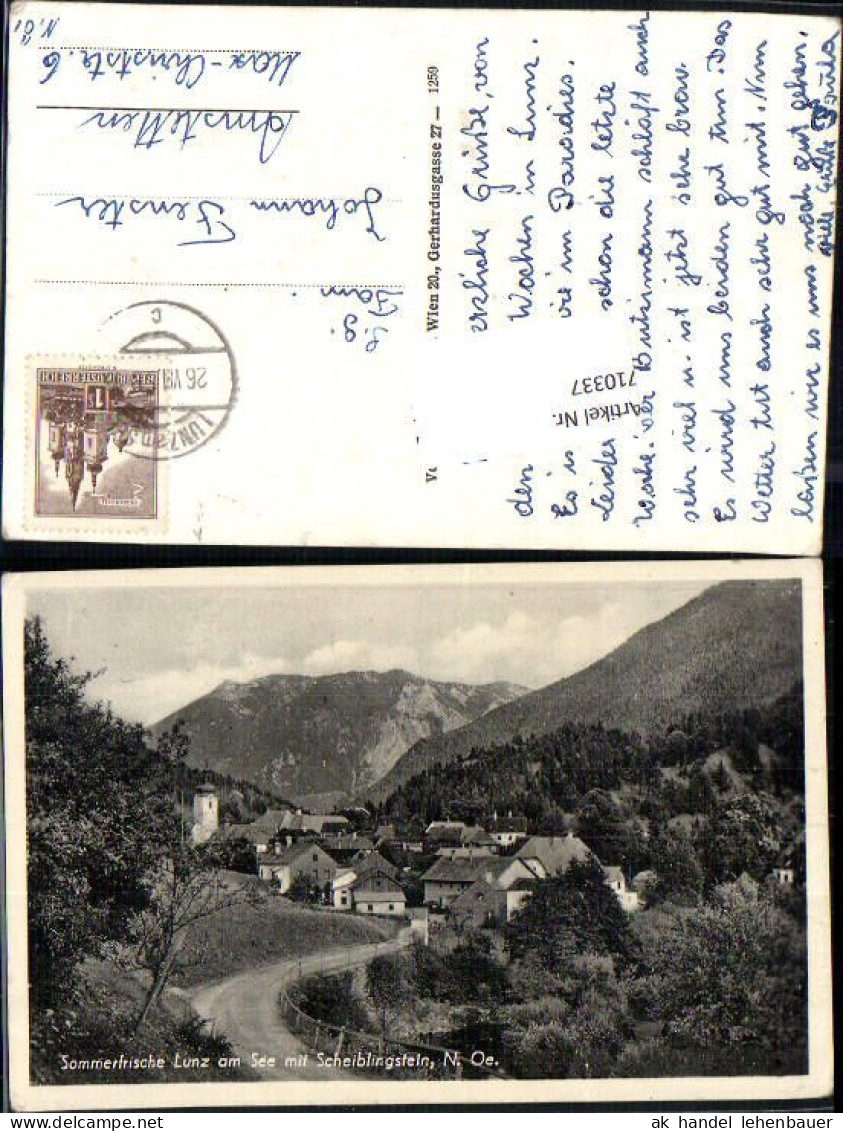 erzliche Grüße, von
den Wochen in Lunz.
Es is wie im Paradies.
Leider schon die letzte
Woche. Der Butzimann schläft auch
sehr viel u. ist jetzt sehr brav.
Es wird uns beiden gut tun. Das
Wetter tut auch sehr gut mit. Nun
laßen wir es uns noch gut gehen.
viele Grüße
Wien 20., Gerhardusgasse 27 — 1259
Artikel Nr.
710337
Fam.
Johann Fenster
Amstetten
Max-Christstr. 6
N.Ö.
REPUBLIK ÖSTERREICH
26 VII
LUNZ am S
C
Sommerfrische Lunz am See mit Scheiblingstein, N. Oe.
ak handel lehenbauer